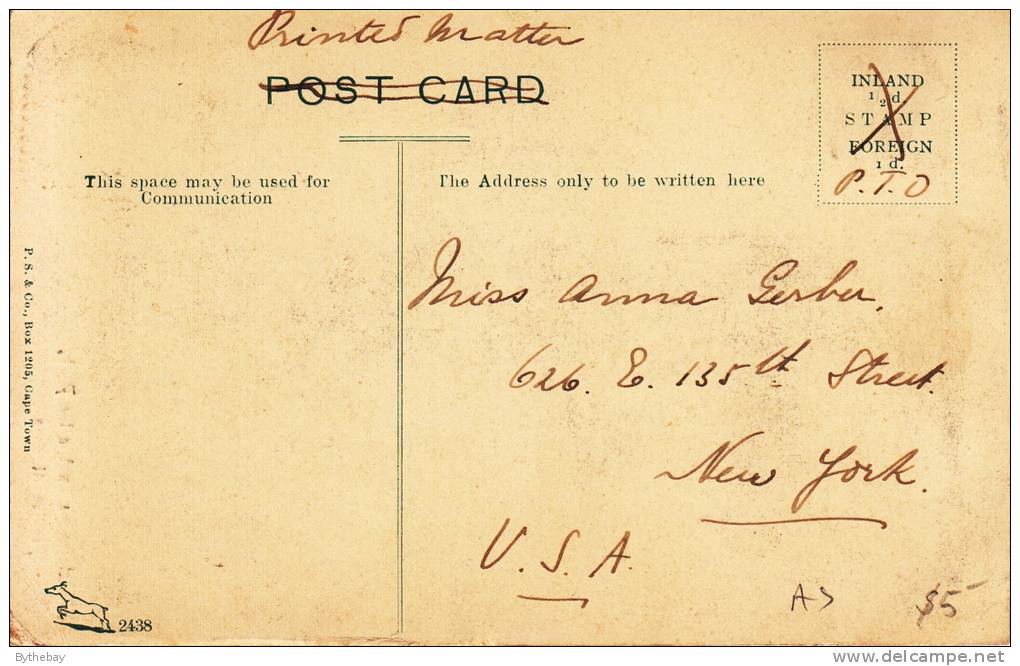 Printed Matter
POST CARD
INLAND
1/2 d.
STAMP
FOREIGN
1 d.
P. T. O
This space may be used for
Communication
The Address only to be written here
Miss Anna Gerber,
626. E. 135th Street.
New York.
U. S. A.
P. S. & Co., Box 1205, Cape Town
2438
A5
$5
Bythebay
www.delcampe.net